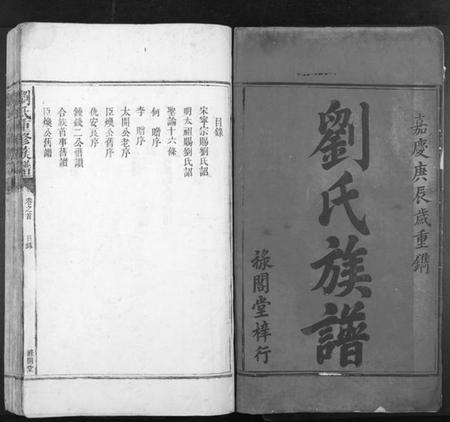 嘉慶庚辰歲重鐫
劉氏族譜
祿閣堂梓行
目錄
宋寧宗賜劉氏詔
明太祖賜劉氏詔
聖諭十六條
何贈序
李贈序
太開公老序
臣幾公舊序
仇安良序
鍾錢二公舊讀
合族首事舊讀
臣幾公舊讀
劉氏重修族譜
卷之首
目錄
祿閣堂